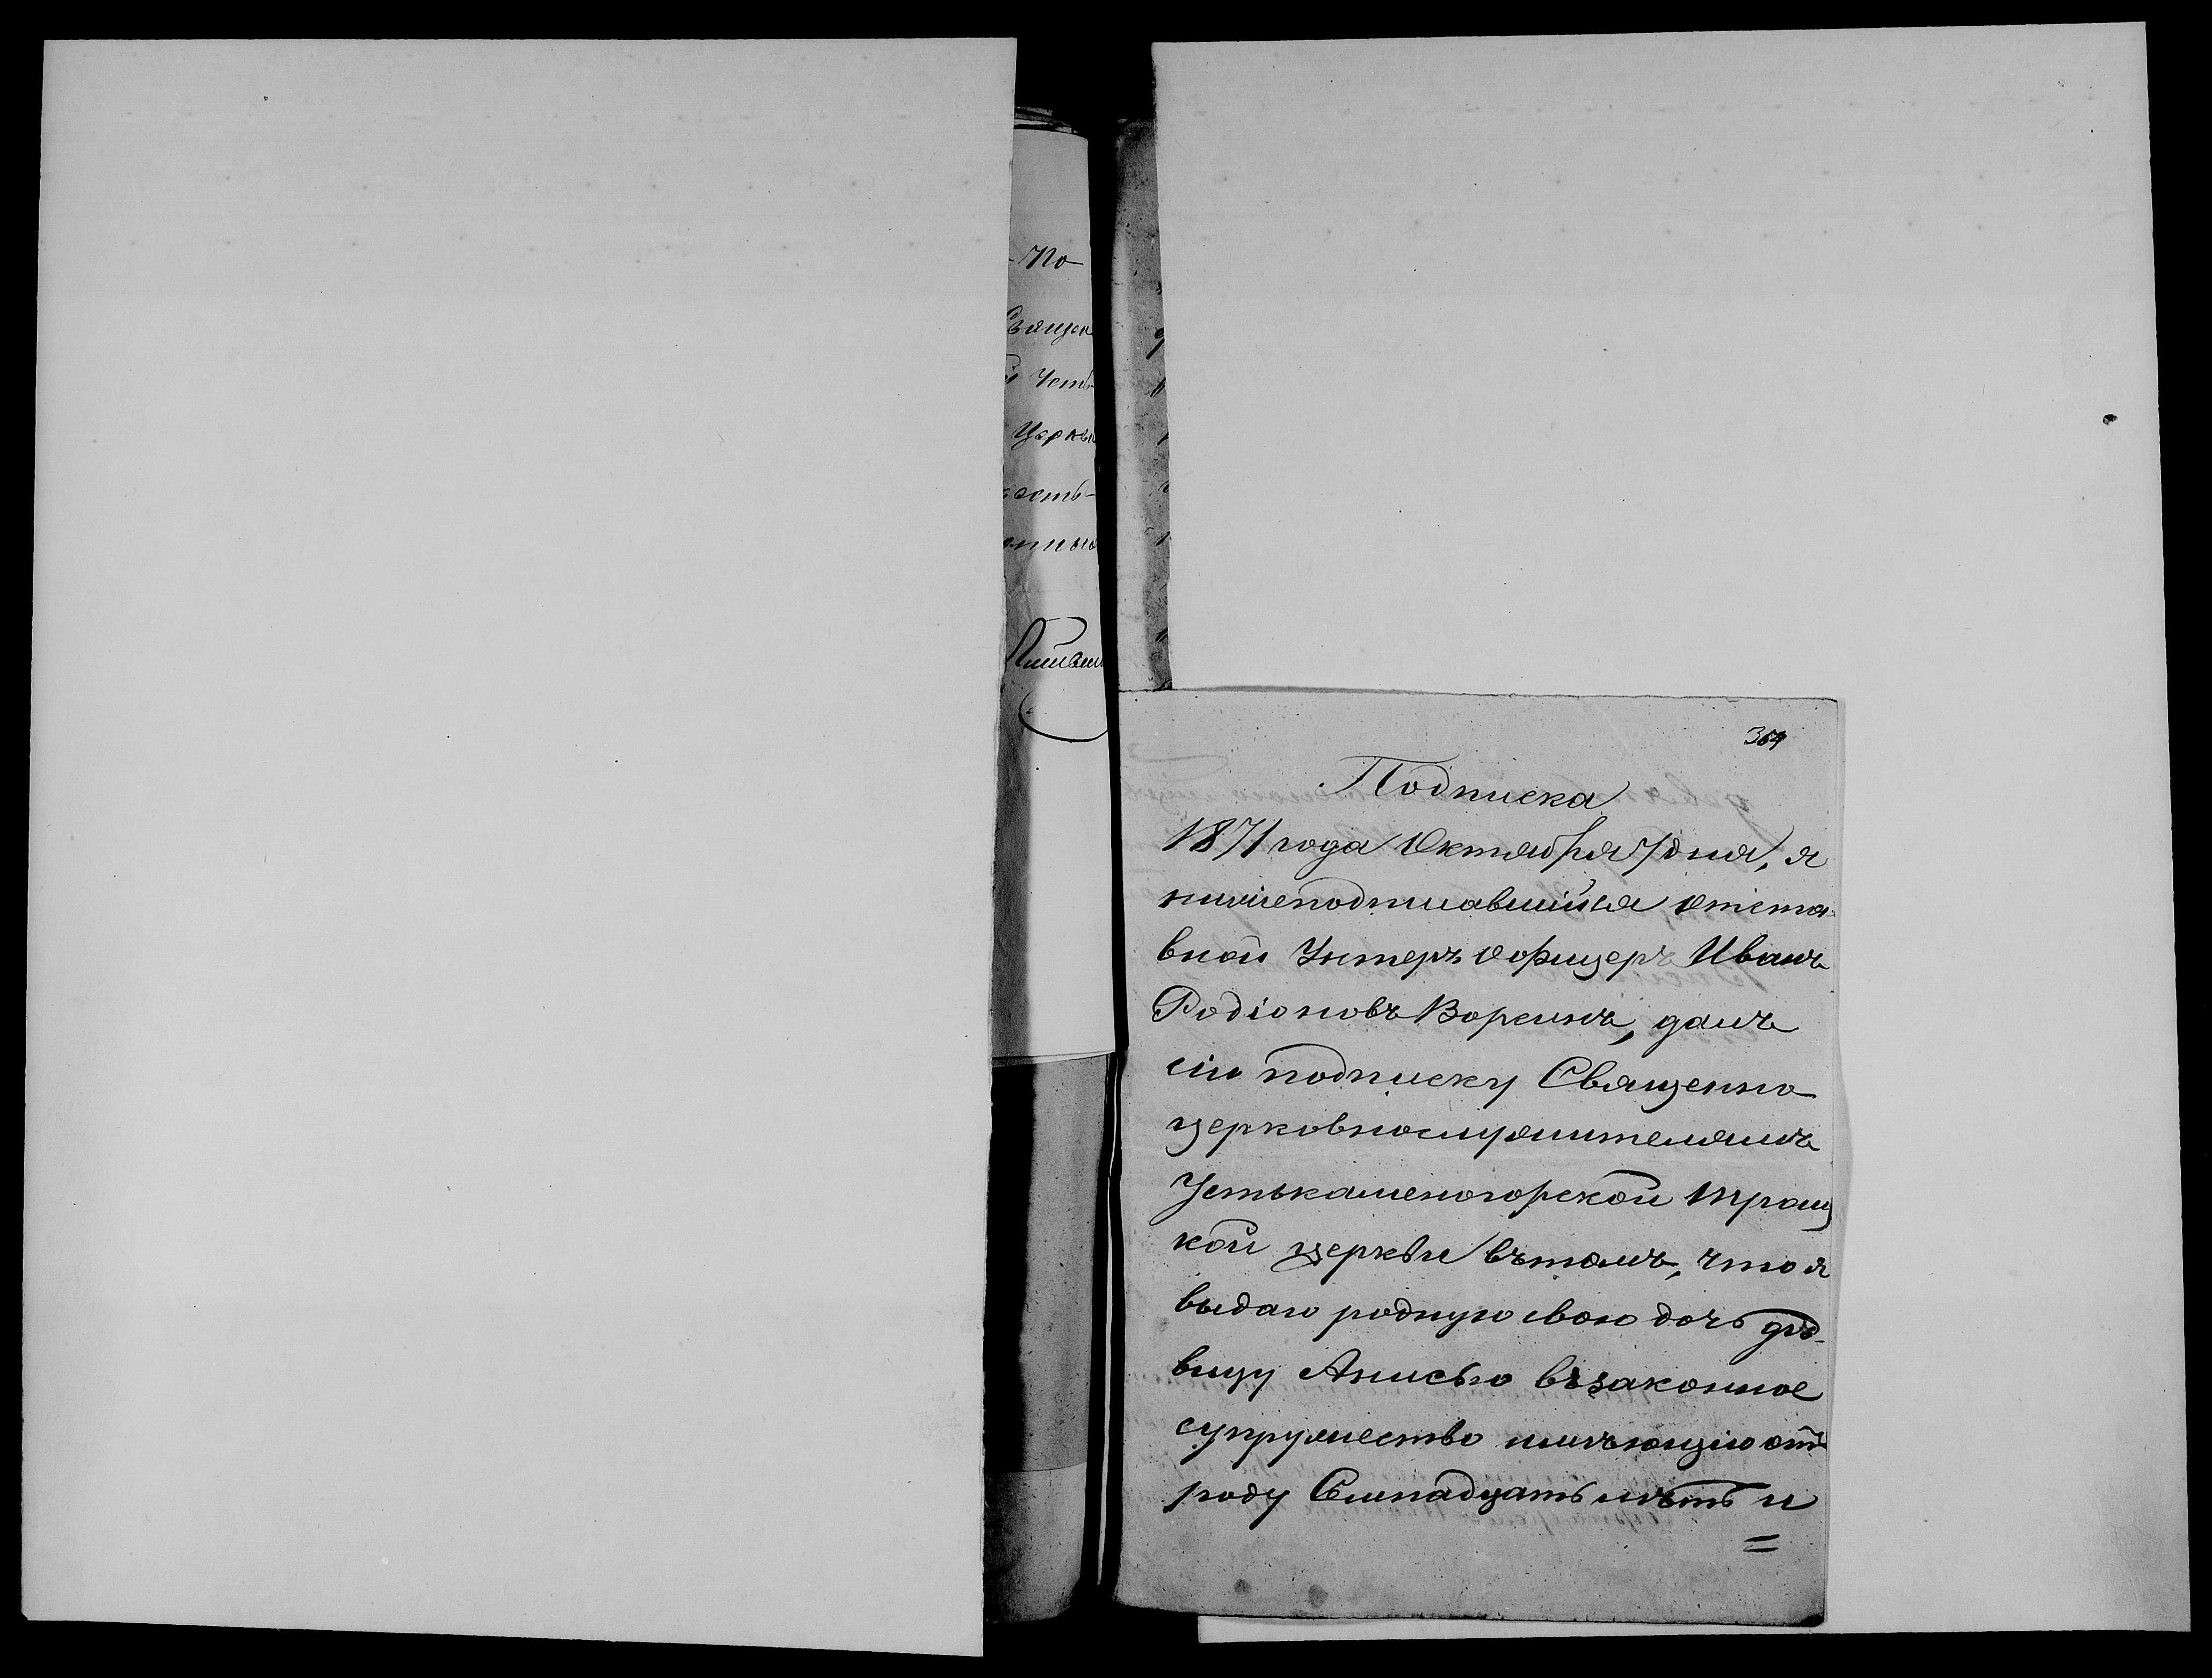 По
Священ
Усть-
Церкви
364
Подписка
1871 года Октября 7 дня, я
нижеподписавшійся отста
вной Унтеръ Офицеръ Иванъ
Родіоновъ Воренъ, далъ
сію подписку Священно
церковнослужителямъ
Устькаменогорской Троиц
кой церкви въ томъ, что я
выдаю родную свою дочь дѣ-
вицу Анисью въ законное
супружество имѣющую отъ
роду Семнадцать лѣтъ и
=